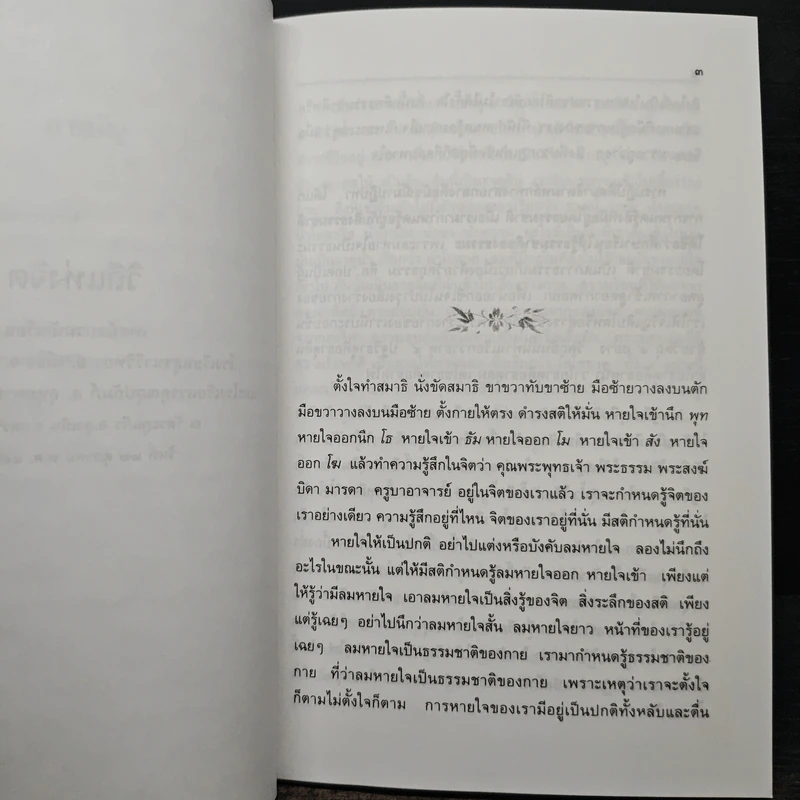 ๓
ตั้งใจทำสมาธิ นั่งขัดสมาธิ ขาขวาทับขาซ้าย มือซ้ายวางลงบนตัก
มือขวาวางลงบนมือซ้าย ตั้งกายให้ตรง ดำรงสติให้มั่น หายใจเข้านึก พุท
หายใจออกนึก โธ หายใจเข้า ธัม หายใจออก โม หายใจเข้า สัง หายใจ
ออก โฆ แล้วทำความรู้สึกในจิตว่า คุณพระพุทธเจ้า พระธรรม พระสงฆ์
บิดา มารดา ครูบาอาจารย์ อยู่ในจิตของเราแล้ว เราจะกำหนดรู้จิตของ
เราอย่างเดียว ความรู้สึกอยู่ที่ไหน จิตของเราอยู่ที่นั่น มีสติกำหนดรู้ที่นั่น
หายใจให้เป็นปกติ อย่าไปแต่งหรือบังคับลมหายใจ ลองไม่นึกถึง
อะไรในขณะนั้น แต่ให้มีสติกำหนดรู้ลมหายใจออก หายใจเข้า เพียงแต่
ให้รู้ว่ามีลมหายใจ เอาลมหายใจเป็นสิ่งรู้ของจิต สิ่งระลึกของสติ เพียง
แต่รู้เฉยๆ อย่าไปนึกว่าลมหายใจสั้น ลมหายใจยาว หน้าที่ของเรารู้อยู่
เฉยๆ ลมหายใจเป็นธรรมชาติของกาย เรามากำหนดรู้ธรรมชาติของ
กาย ที่ว่าลมหายใจเป็นธรรมชาติของกาย เพราะเหตุว่าเราจะตั้งใจ
ก็ตามไม่ตั้งใจก็ตาม การหายใจของเรามีอยู่เป็นปกติทั้งหลับและตื่น